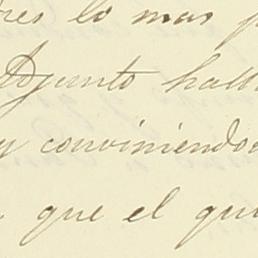 res lo mas p
Adjunto hall
y conviniendo
que el qu